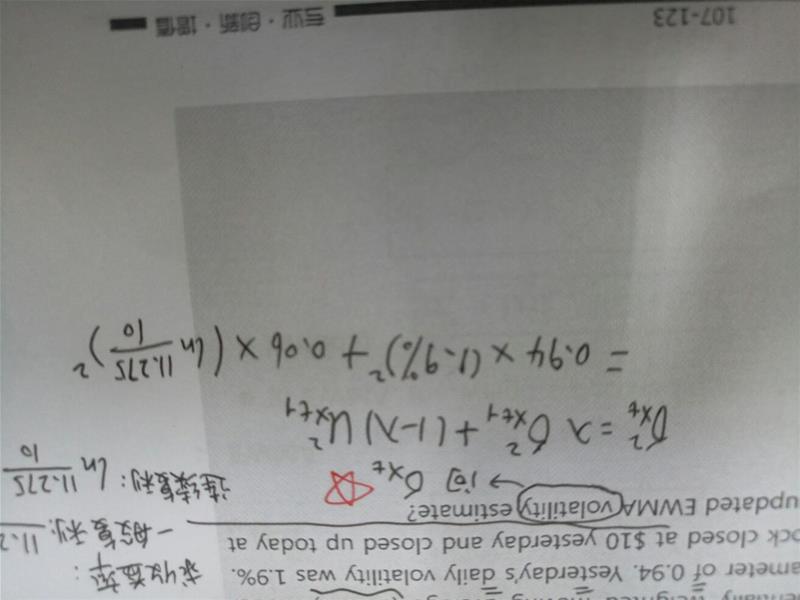 entially weighted moving
ameter of 0.94. Yesterday's daily volatility was 1.9%.
ock closed at $10 yesterday and closed up today at
updated EWMA volatility estimate?
求收益率:
一般复利:
连续复利: ln 11.275/10
→ 问 σxt
σ²xt = λ σ²xt-1 + (1-λ) u²xt-1
= 0.94 × (1.9%)² + 0.06 × (ln 11.275/10)²
107-123
专业·创新·增值